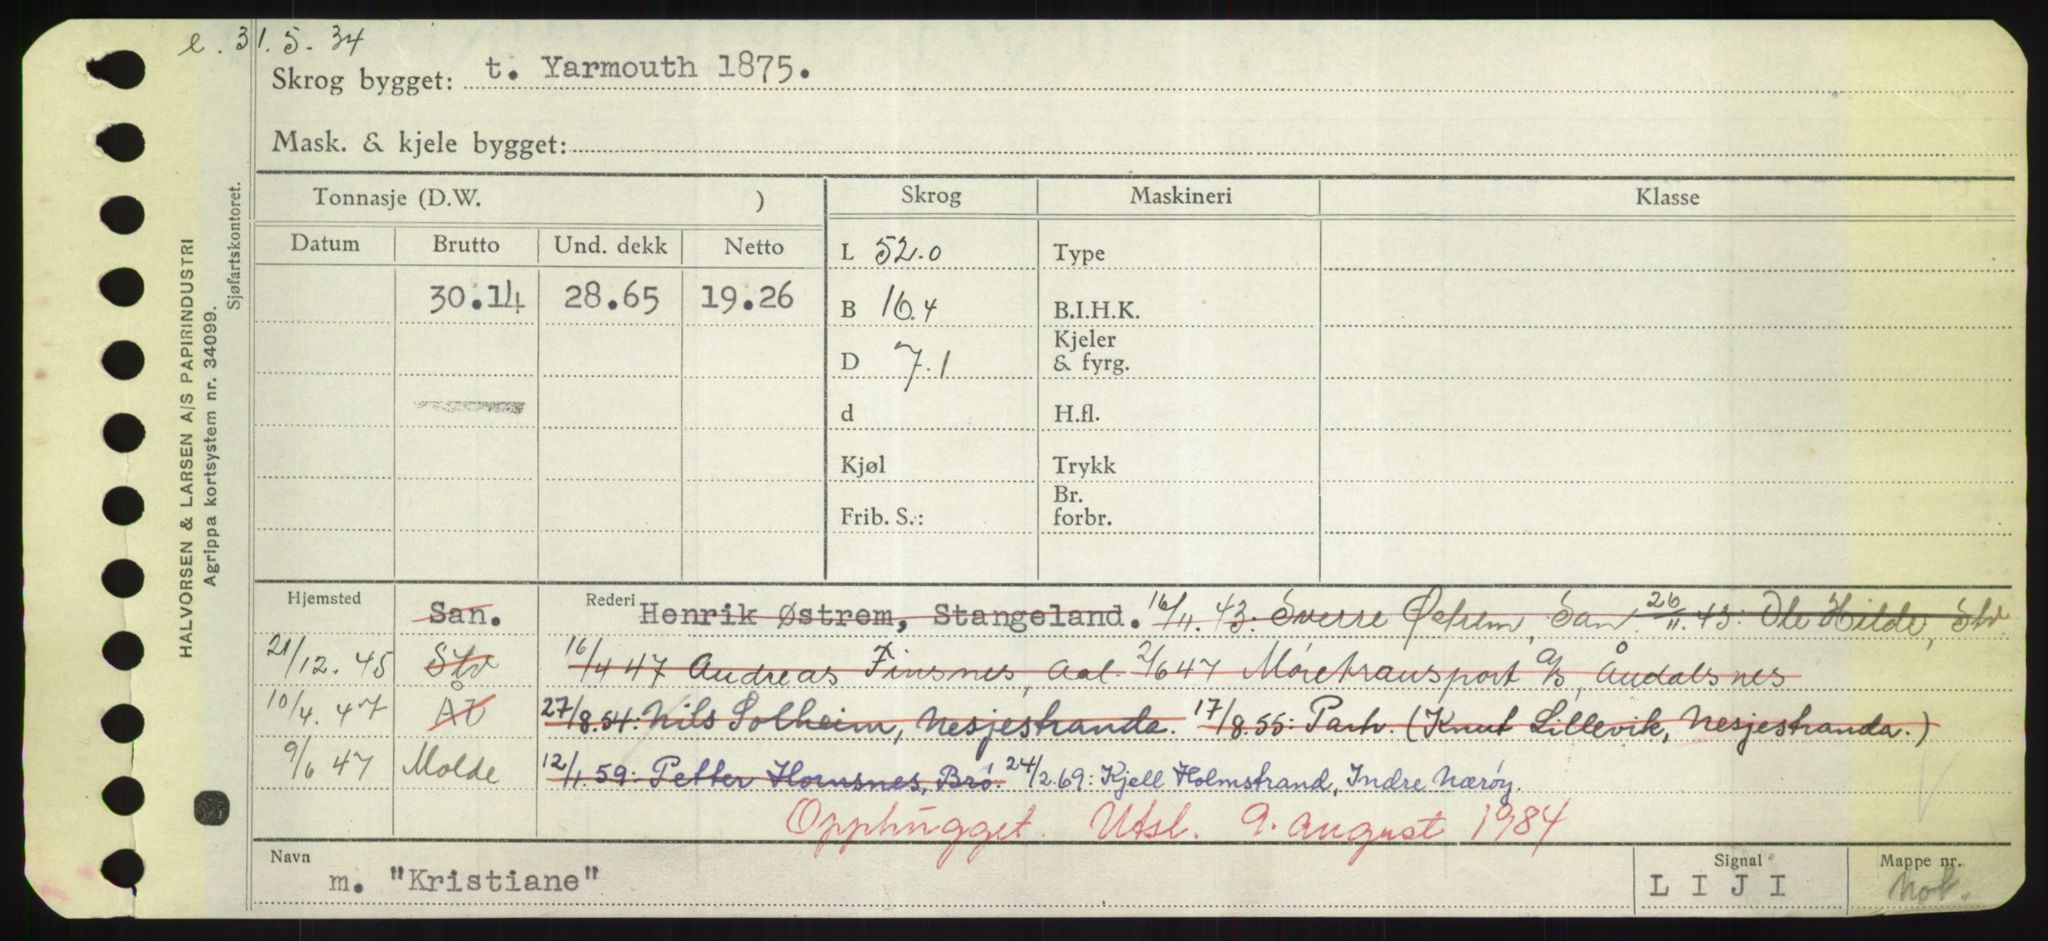 e. 31.5.34
Skrog bygget: t. Yarmouth 1875.
Mask. & kjele bygget:
HALVORSEN & LARSEN A/S PAPIRINDUSTRI
Agrippa kortsystem nr. 34099.
Sjøfartskontoret.
Tonnasje (D.W. ) Skrog Maskineri Klasse
Datum Brutto Und. dekk Netto L 52.0 Type
30.14 28.65 19.26 B 16.4 B.I.H.K.
D 7.1 Kjeler & fyrg.
d H.fl.
Kjøl Trykk
Frib. S.: Br. forbr.
Hjemsted San. Rederi Henrik Østrem, Stangeland. 16/11.43: Sverre Østrem, San 26/11.43: Ole Hilde, Stv
21/12.45 Stv 16/4 47 Andreas Finsnes, Aal. 2/6 47 Møretransport A/S, Åndalsnes
10/4.47 Ål 27/8.54: Nils Solheim, Nesjestranda. 17/8.55: Partr. (Knut Lillevik, Nesjestranda.)
9/6 47 Molde 12/1.59: Petter Hornsnes, Brø. 24/2.69: Kjell Holmstrand, Indre Nærøy.
Opphugget. Utsl. 9. august 1984
Navn m. "Kristiane" Signal L I J I Mappe nr. Not.